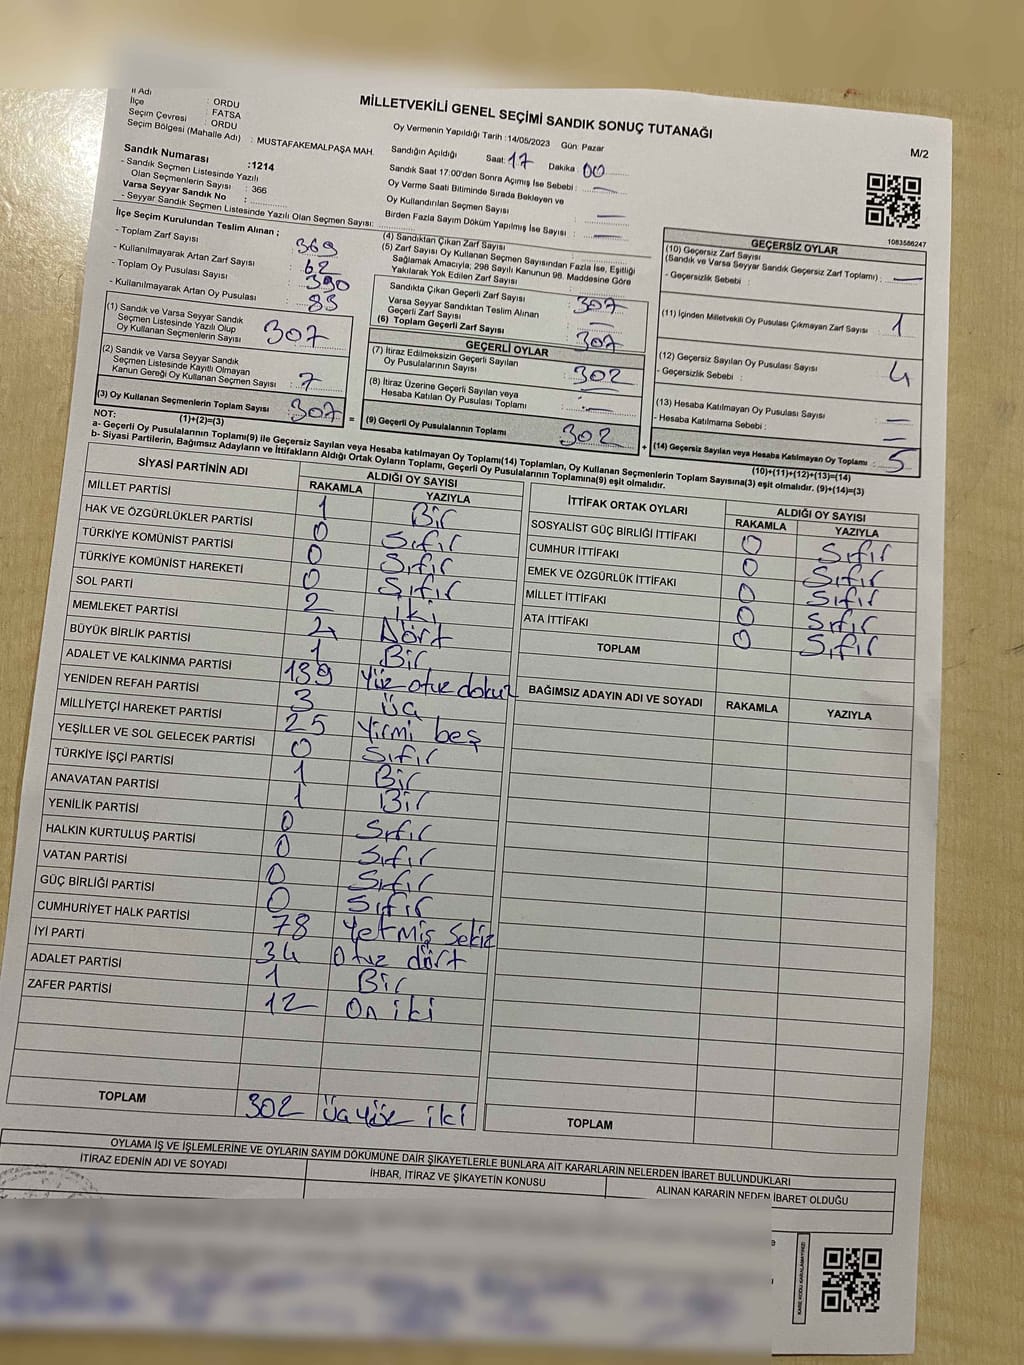 İl Adı : ORDU
İlçe : FATSA
Seçim Çevresi : ORDU
Seçim Bölgesi (Mahalle Adı) : MUSTAFAKEMALPAŞA MAH.
MİLLETVEKİLİ GENEL SEÇİMİ SANDIK SONUÇ TUTANAĞI
M/2
Oy Vermenin Yapıldığı Tarih :14/05/2023 Gün: Pazar
Sandığın Açıldığı Saat: 17 Dakika : 00
Sandık Saat 17:00'den Sonra Açılmış İse Sebebi : —
Oy Verme Saati Bitiminde Sırada Bekleyen ve
Oy Kullandırılan Seçmen Sayısı : —
Birden Fazla Sayım Döküm Yapılmış İse Sayısı : —
Sandık Numarası :1214
- Sandık Seçmen Listesinde Yazılı
Olan Seçmenlerin Sayısı : 366
Varsa Seyyar Sandık No :
- Seyyar Sandık Seçmen Listesinde Yazılı Olan Seçmen Sayısı:
1083586247
İlçe Seçim Kurulundan Teslim Alınan ;
- Toplam Zarf Sayısı : 369
- Kullanılmayarak Artan Zarf Sayısı : 62
- Toplam Oy Pusulası Sayısı : 390
- Kullanılmayarak Artan Oy Pusulası : 83
(1) Sandık ve Varsa Seyyar Sandık
Seçmen Listesinde Yazılı Olup
Oy Kullanan Seçmenlerin Sayısı : 307
(2) Sandık ve Varsa Seyyar Sandık
Seçmen Listesinde Kayıtlı Olmayan
Kanun Gereği Oy Kullanan Seçmen Sayısı : 7
(3) Oy Kullanan Seçmenlerin Toplam Sayısı : 307
(1)+(2)=(3)
(4) Sandıktan Çıkan Zarf Sayısı
(5) Zarf Sayısı Oy Kullanan Seçmen Sayısından Fazla İse, Eşitliği
Sağlamak Amacıyla; 298 Sayılı Kanunun 98. Maddesine Göre
Yakılarak Yok Edilen Zarf Sayısı :
Sandıkta Çıkan Geçerli Zarf Sayısı : 307
Varsa Seyyar Sandıktan Teslim Alınan
Geçerli Zarf Sayısı : —
(6) Toplam Geçerli Zarf Sayısı : 307
GEÇERLİ OYLAR
(7) İtiraz Edilmeksizin Geçerli Sayılan
Oy Pusulalarının Sayısı : 302
(8) İtiraz Üzerine Geçerli Sayılan veya
Hesaba Katılan Oy Pusulası Toplamı : —
= (9) Geçerli Oy Pusulalarının Toplamı : 302
GEÇERSİZ OYLAR
(10) Geçersiz Zarf Sayısı
(Sandık ve Varsa Seyyar Sandık Geçersiz Zarf Toplamı) : —
- Geçersizlik Sebebi :
(11) İçinden Milletvekili Oy Pusulası Çıkmayan Zarf Sayısı : 1
(12) Geçersiz Sayılan Oy Pusulası Sayısı : 4
- Geçersizlik Sebebi :
(13) Hesaba Katılmayan Oy Pusulası Sayısı : —
- Hesaba Katılmama Sebebi : —
+ (14) Geçersiz Sayılan veya Hesaba Katılmayan Oy Toplamı : 5
(10)+(11)+(12)+(13)=(14)
NOT:
a- Geçerli Oy Pusulalarının Toplamı(9) ile Geçersiz Sayılan veya Hesaba katılmayan Oy Toplamı(14) Toplamları, Oy Kullanan Seçmenlerin Toplam Sayısına(3) eşit olmalıdır. (9)+(14)=(3)
b- Siyasi Partilerin, Bağımsız Adayların ve İttifakların Aldığı Ortak Oyların Toplamı, Geçerli Oy Pusulalarının Toplamına(9) eşit olmalıdır.
SİYASİ PARTİNİN ADI ALDIĞI OY SAYISI
RAKAMLA YAZIYLA
MİLLET PARTİSİ 1 Bir
HAK VE ÖZGÜRLÜKLER PARTİSİ 0 Sıfır
TÜRKİYE KOMÜNİST PARTİSİ 0 Sıfır
TÜRKİYE KOMÜNİST HAREKETİ 0 Sıfır
SOL PARTİ 2 İki
MEMLEKET PARTİSİ 4 Dört
BÜYÜK BİRLİK PARTİSİ 1 Bir
ADALET VE KALKINMA PARTİSİ 139 Yüz otuz dokuz
YENİDEN REFAH PARTİSİ 3 Üç
MİLLİYETÇİ HAREKET PARTİSİ 25 Yirmi beş
YEŞİLLER VE SOL GELECEK PARTİSİ 0 Sıfır
TÜRKİYE İŞÇİ PARTİSİ 1 Bir
ANAVATAN PARTİSİ 1 Bir
YENİLİK PARTİSİ 0 Sıfır
HALKIN KURTULUŞ PARTİSİ 0 Sıfır
VATAN PARTİSİ 0 Sıfır
GÜÇ BİRLİĞİ PARTİSİ 0 Sıfır
CUMHURİYET HALK PARTİSİ 78 Yetmiş Sekiz
İYİ PARTİ 34 Otuz dört
ADALET PARTİSİ 1 Bir
ZAFER PARTİSİ 12 On iki
TOPLAM 302 Üçyüz iki
İTTİFAK ORTAK OYLARI ALDIĞI OY SAYISI
RAKAMLA YAZIYLA
SOSYALİST GÜÇ BİRLİĞİ İTTİFAKI 0 Sıfır
CUMHUR İTTİFAKI 0 Sıfır
EMEK VE ÖZGÜRLÜK İTTİFAKI 0 Sıfır
MİLLET İTTİFAKI 0 Sıfır
ATA İTTİFAKI 0 Sıfır
TOPLAM
BAĞIMSIZ ADAYIN ADI VE SOYADI RAKAMLA YAZIYLA
TOPLAM
OYLAMA İŞ VE İŞLEMLERİNE VE OYLARIN SAYIM DÖKÜMÜNE DAİR ŞİKAYETLERLE BUNLARA AİT KARARLARIN NELERDEN İBARET BULUNDUKLARI
İTİRAZ EDENİN ADI VE SOYADI İHBAR, İTİRAZ VE ŞİKAYETİN KONUSU ALINAN KARARIN NEDEN İBARET OLDUĞU